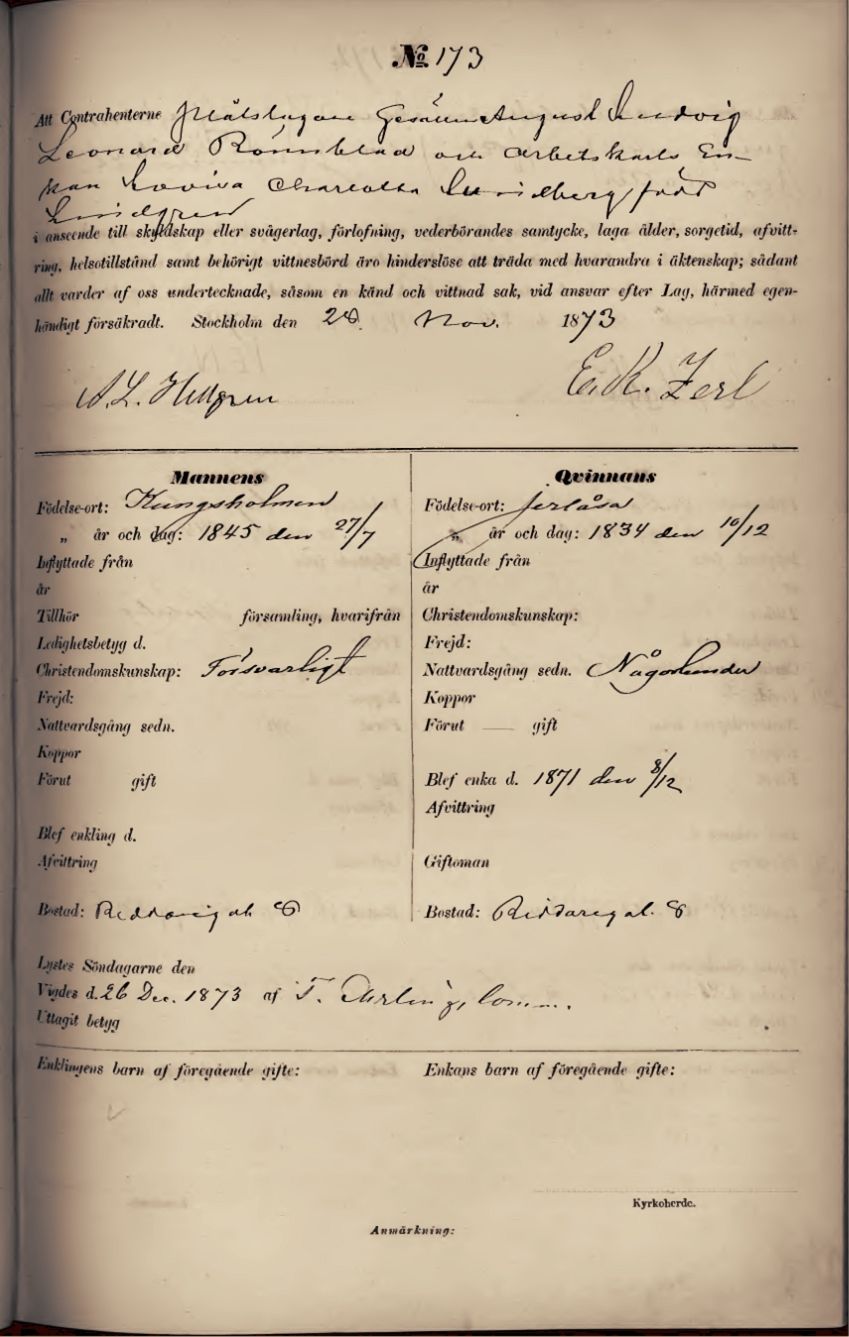 № 173
Att Contrahenterne Plåtslagare Gesällen August Ludvig
Leonard Rönnblad och Arbetskarls En-
kan Lovisa Charlotta Lundberg född
Lindgren
i anseende till skyldskap eller svågerlag, förlofning, vederbörandes samtycke, laga ålder, sorgetid, afvitt-
ring, helsotillstånd samt behörigt vittnesbörd äro hinderslöse att träda med hvarandra i äktenskap; sådant
allt varder af oss undertecknade, såsom en känd och vittnad sak, vid ansvar efter Lag, härmed egen-
händigt försäkradt. Stockholm den 28 Nov. 1873
A. L. Hellgren E. K. Zerl
Mannens
Födelse-ort: Kungsholmen
„ år och dag: 1845 den 27/7
Inflyttade från
år
Tillhör församling, hvarifrån
Ledighetsbetyg d.
Christendomskunskap: Försvarligt
Frejd:
Nattvardsgång sedn.
Koppor
Förut gift
Blef enkling d.
Afvittring
Bostad: Riddareg al. 8
Qvinnans
Födelse-ort: Jerlåsa
„ år och dag: 1834 den 10/12
Inflyttade från
år
Christendomskunskap:
Frejd:
Nattvardsgång sedn. Någorlunda
Koppor
Förut — gift
Blef enka d. 1871 den 8/12
Afvittring
Giftoman
Bostad: Riddareg al. 8
Lystes Söndagarne den
Vigdes d. 26 Dec. 1873 af F. Ehrling, Comm.
Uttagit betyg
Enklingens barn af föregående gifte:
Enkans barn af föregående gifte:
Kyrkoherde.
Anmärkning: